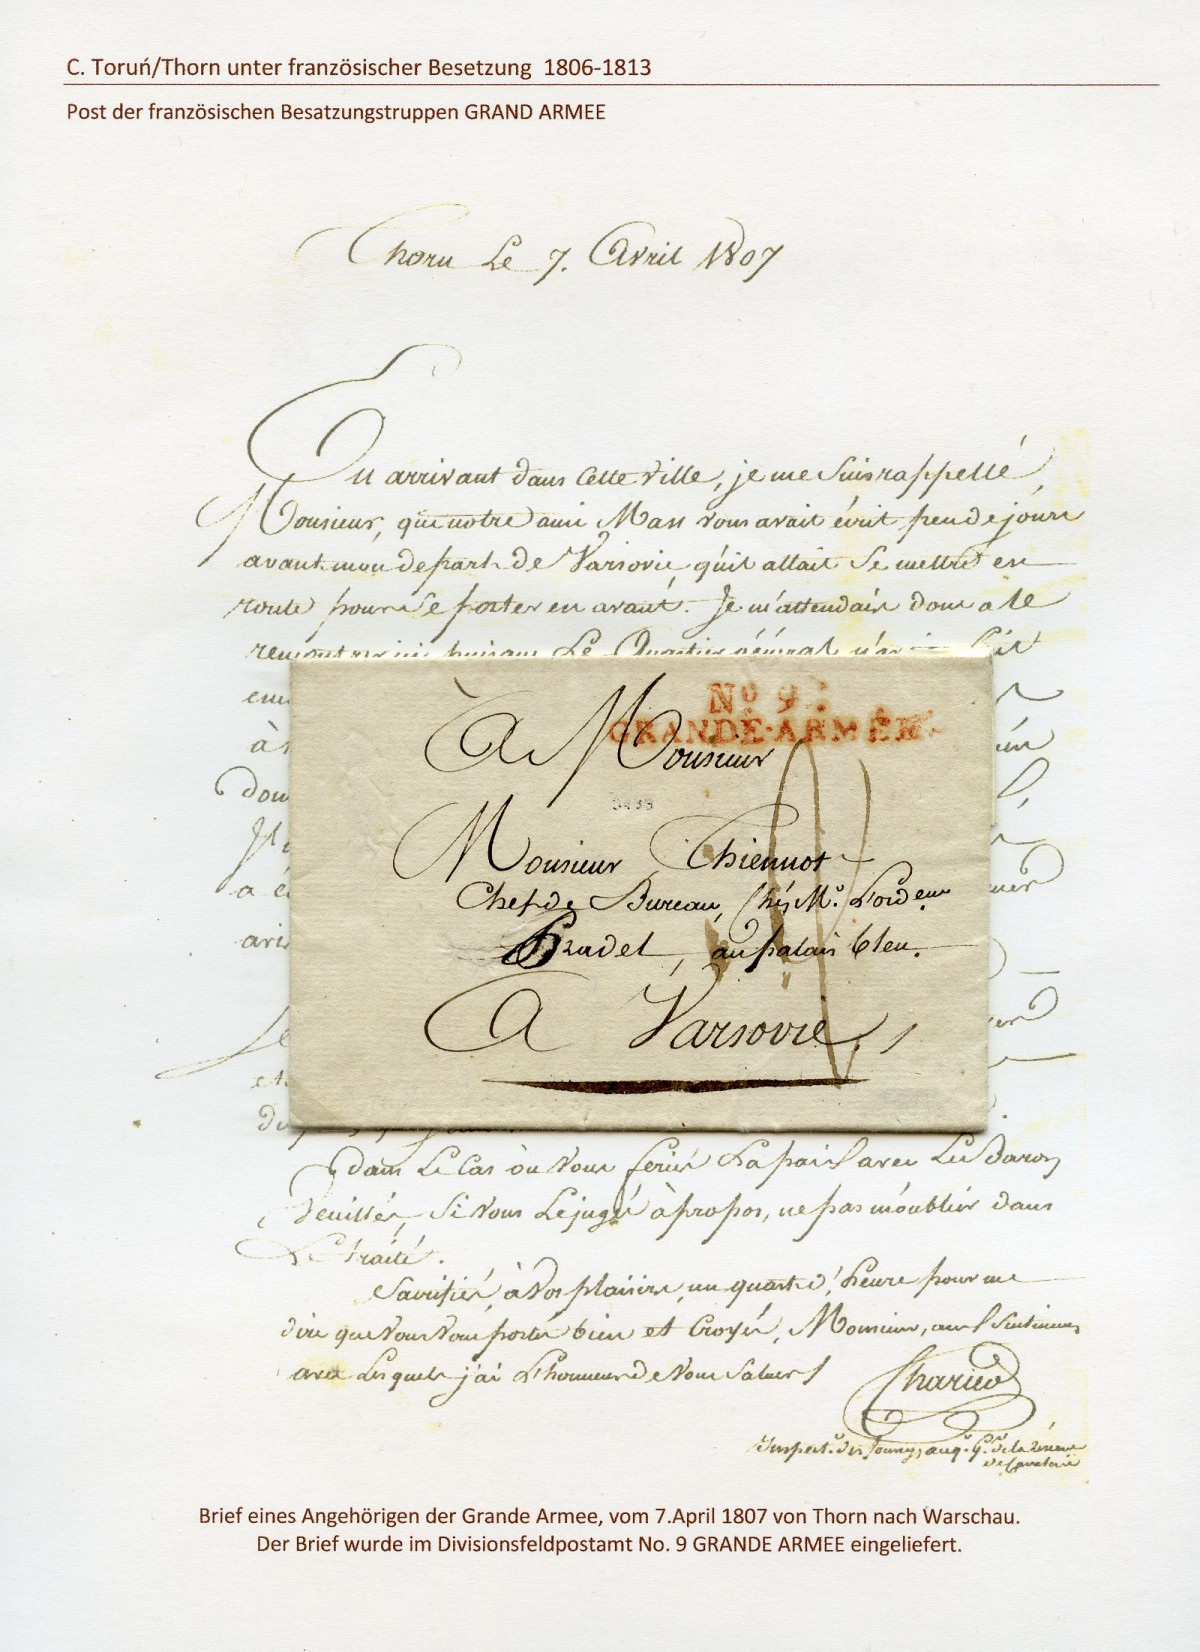 C. Toruń/Thorn unter französischer Besetzung 1806-1813
Post der französischen Besatzungstruppen GRAND ARMEE
Thorn Le 7. Avril 1807
En arrivant dans cette ville, je me suis rappellé,
Monsieur, que notre ami Mass vous avait écrit peu de jours
avant mon depart de Varsovie, qu'il allait se mettre en
route pour se porter en avant. Je m'attendais donc a le
rencontrer ici, puisque Le Quartier général
N.º 9.
GRANDE·ARMÉE.
À Monsieur
3438
Monsieur Thiennot
Chef de Bureau, Chés Mr. L'orden
Pradel, au palais bleu.
A Varsovie,
dans Le Cas où vous feriés La paix avec Les Barons
veuillés, si vous Le jugés à propos, ne pas m'oublier dans
Le traité.
Sacrifiés, à vos plaisirs, un quart d'heure pour me
dire que vous vous portés bien et croyés, Monsieur, aux Sentimens
avec Lesquels j'ai L'honneur de vous saluer
Inspect. des fourg, au q. Gr. de la Réserve
de Cavalerie
Brief eines Angehörigen der Grande Armee, vom 7.April 1807 von Thorn nach Warschau.
Der Brief wurde im Divisionsfeldpostamt No. 9 GRANDE ARMEE eingeliefert.